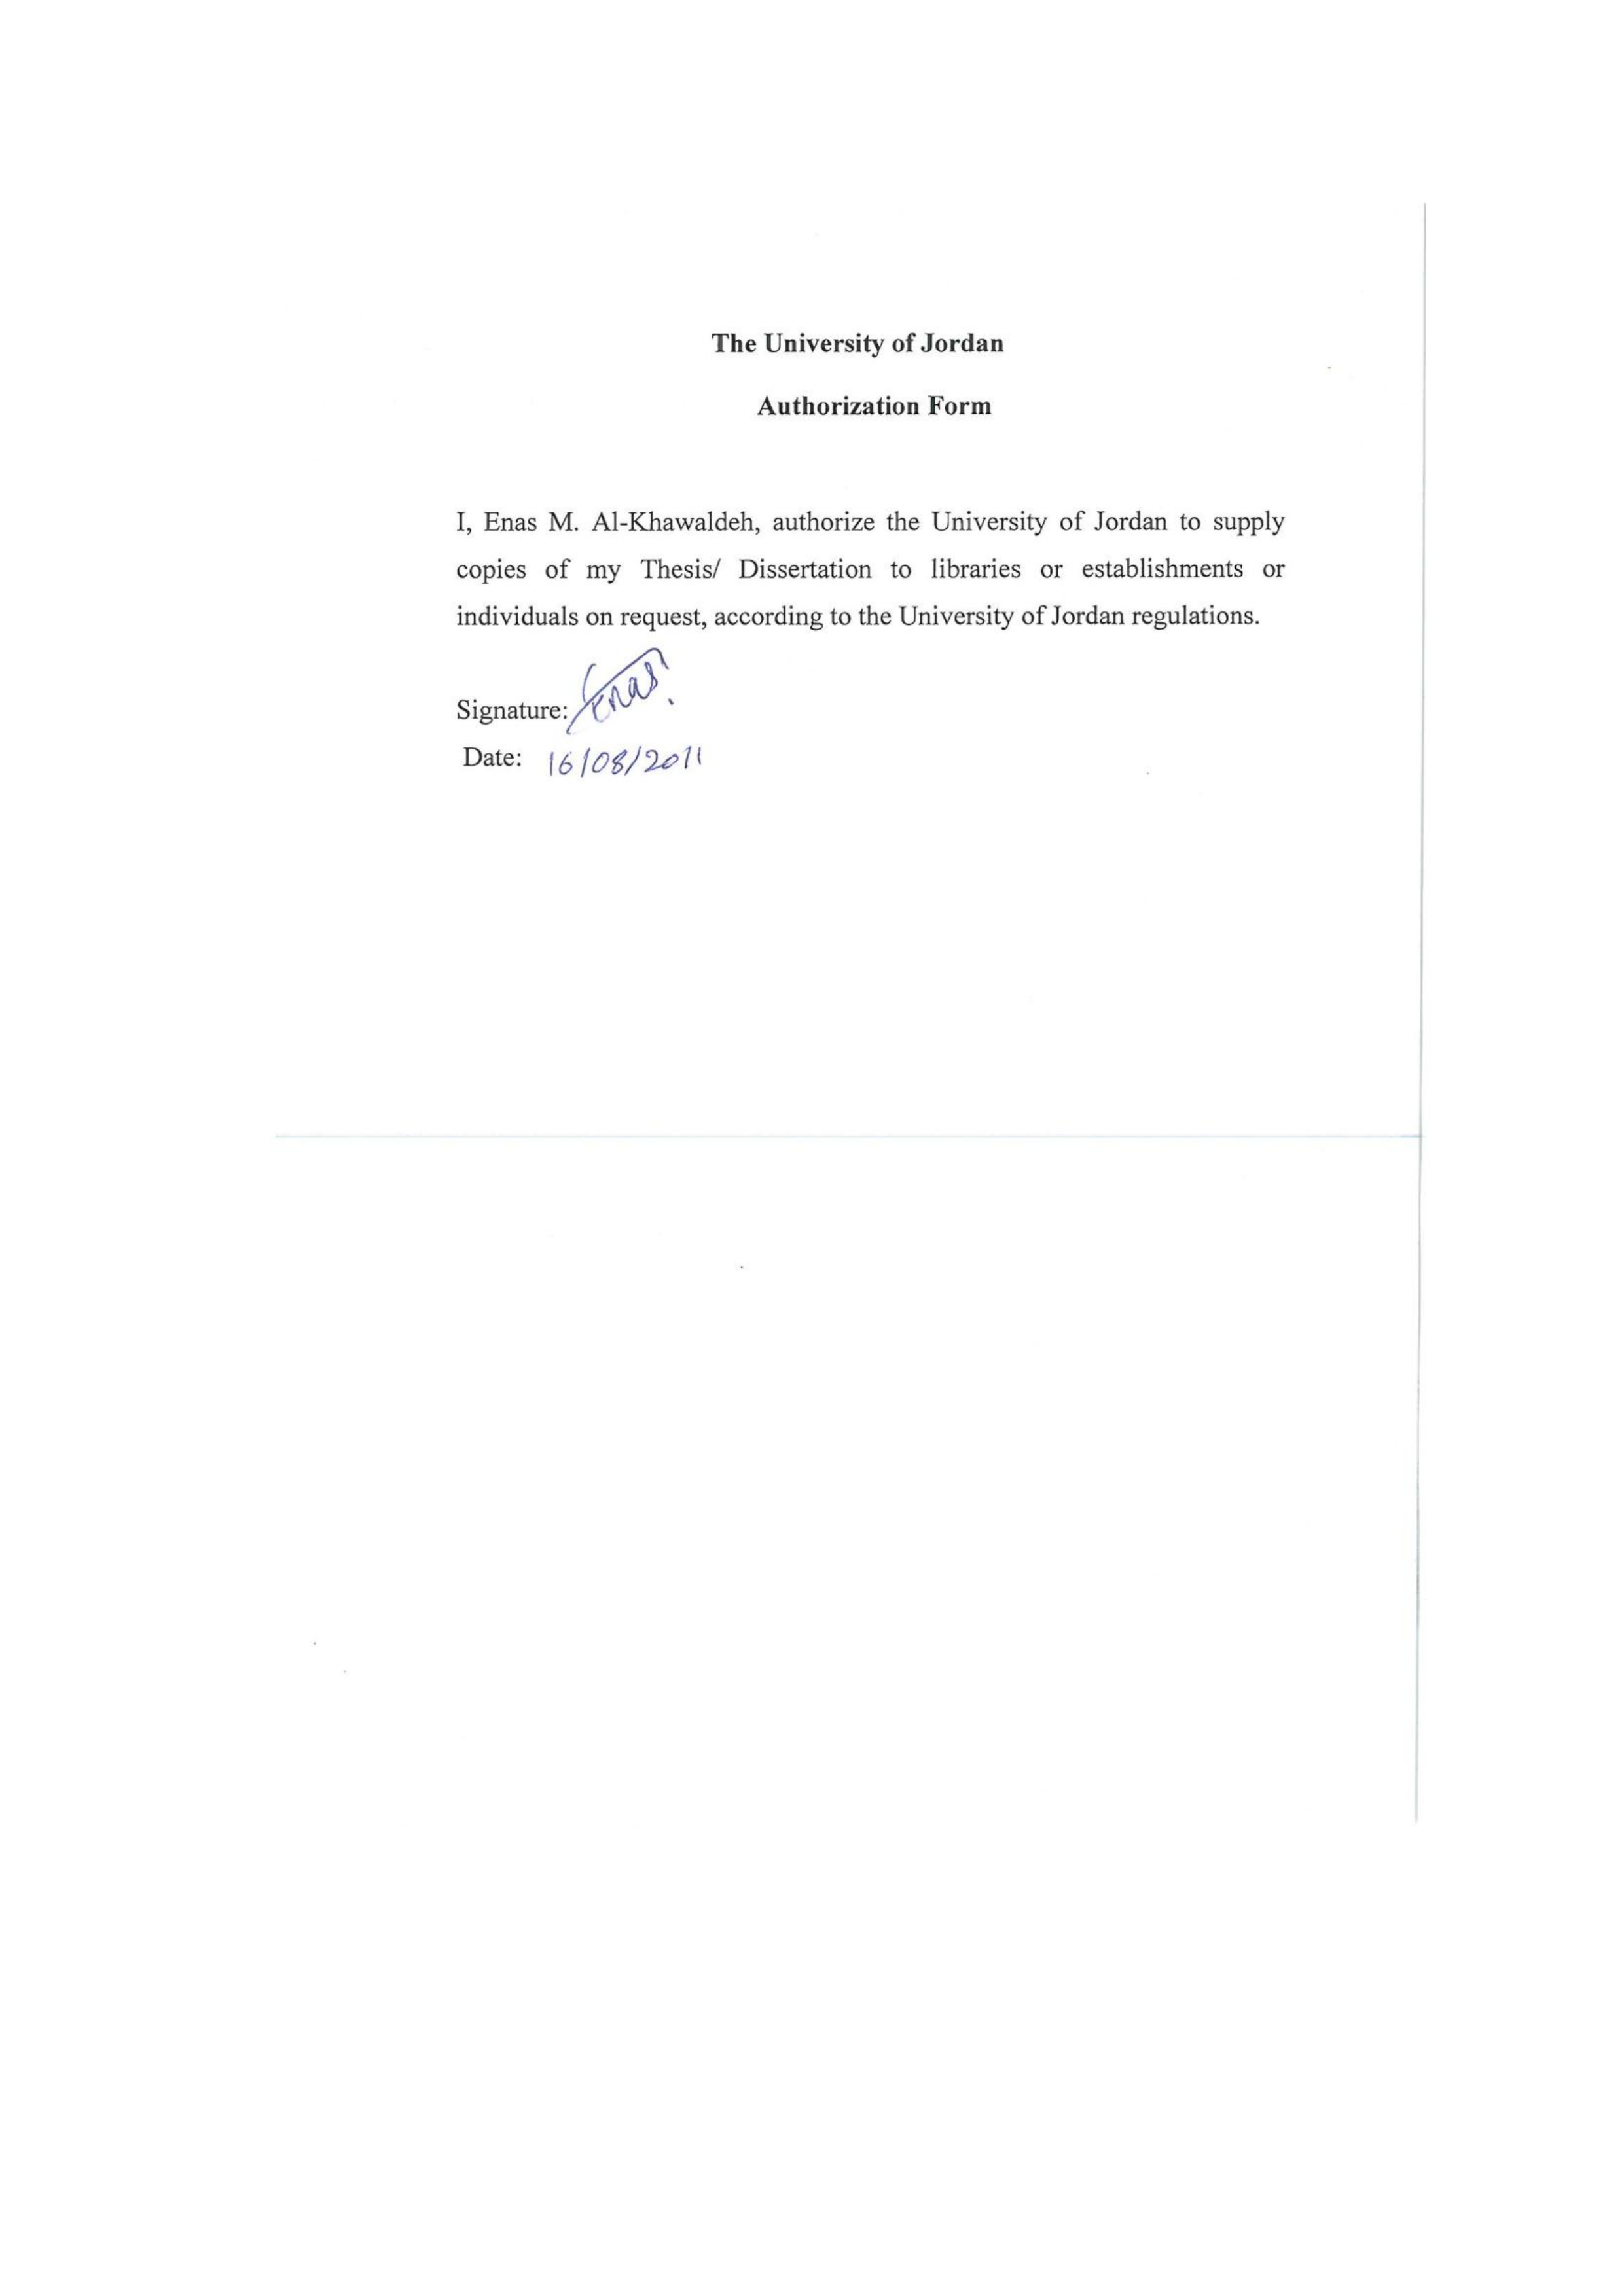 The University of Jordan
Authorization Form
I, Enas M. Al-Khawaldeh, authorize the University of Jordan to supply
copies of my Thesis/ Dissertation to libraries or establishments or
individuals on request, according to the University of Jordan regulations.
Signature: Enas
Date: 16/08/2011